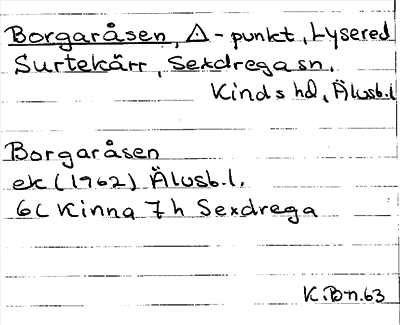 Borgaråsen, Δ-punkt, Lysered
Surtekärr, Sexdrega sn.
Kinds hd, Älvsb.l
Borgaråsen
ek (1962) Älvsb.l.
6C Kinna 7h Sexdrega
K.Bn.63